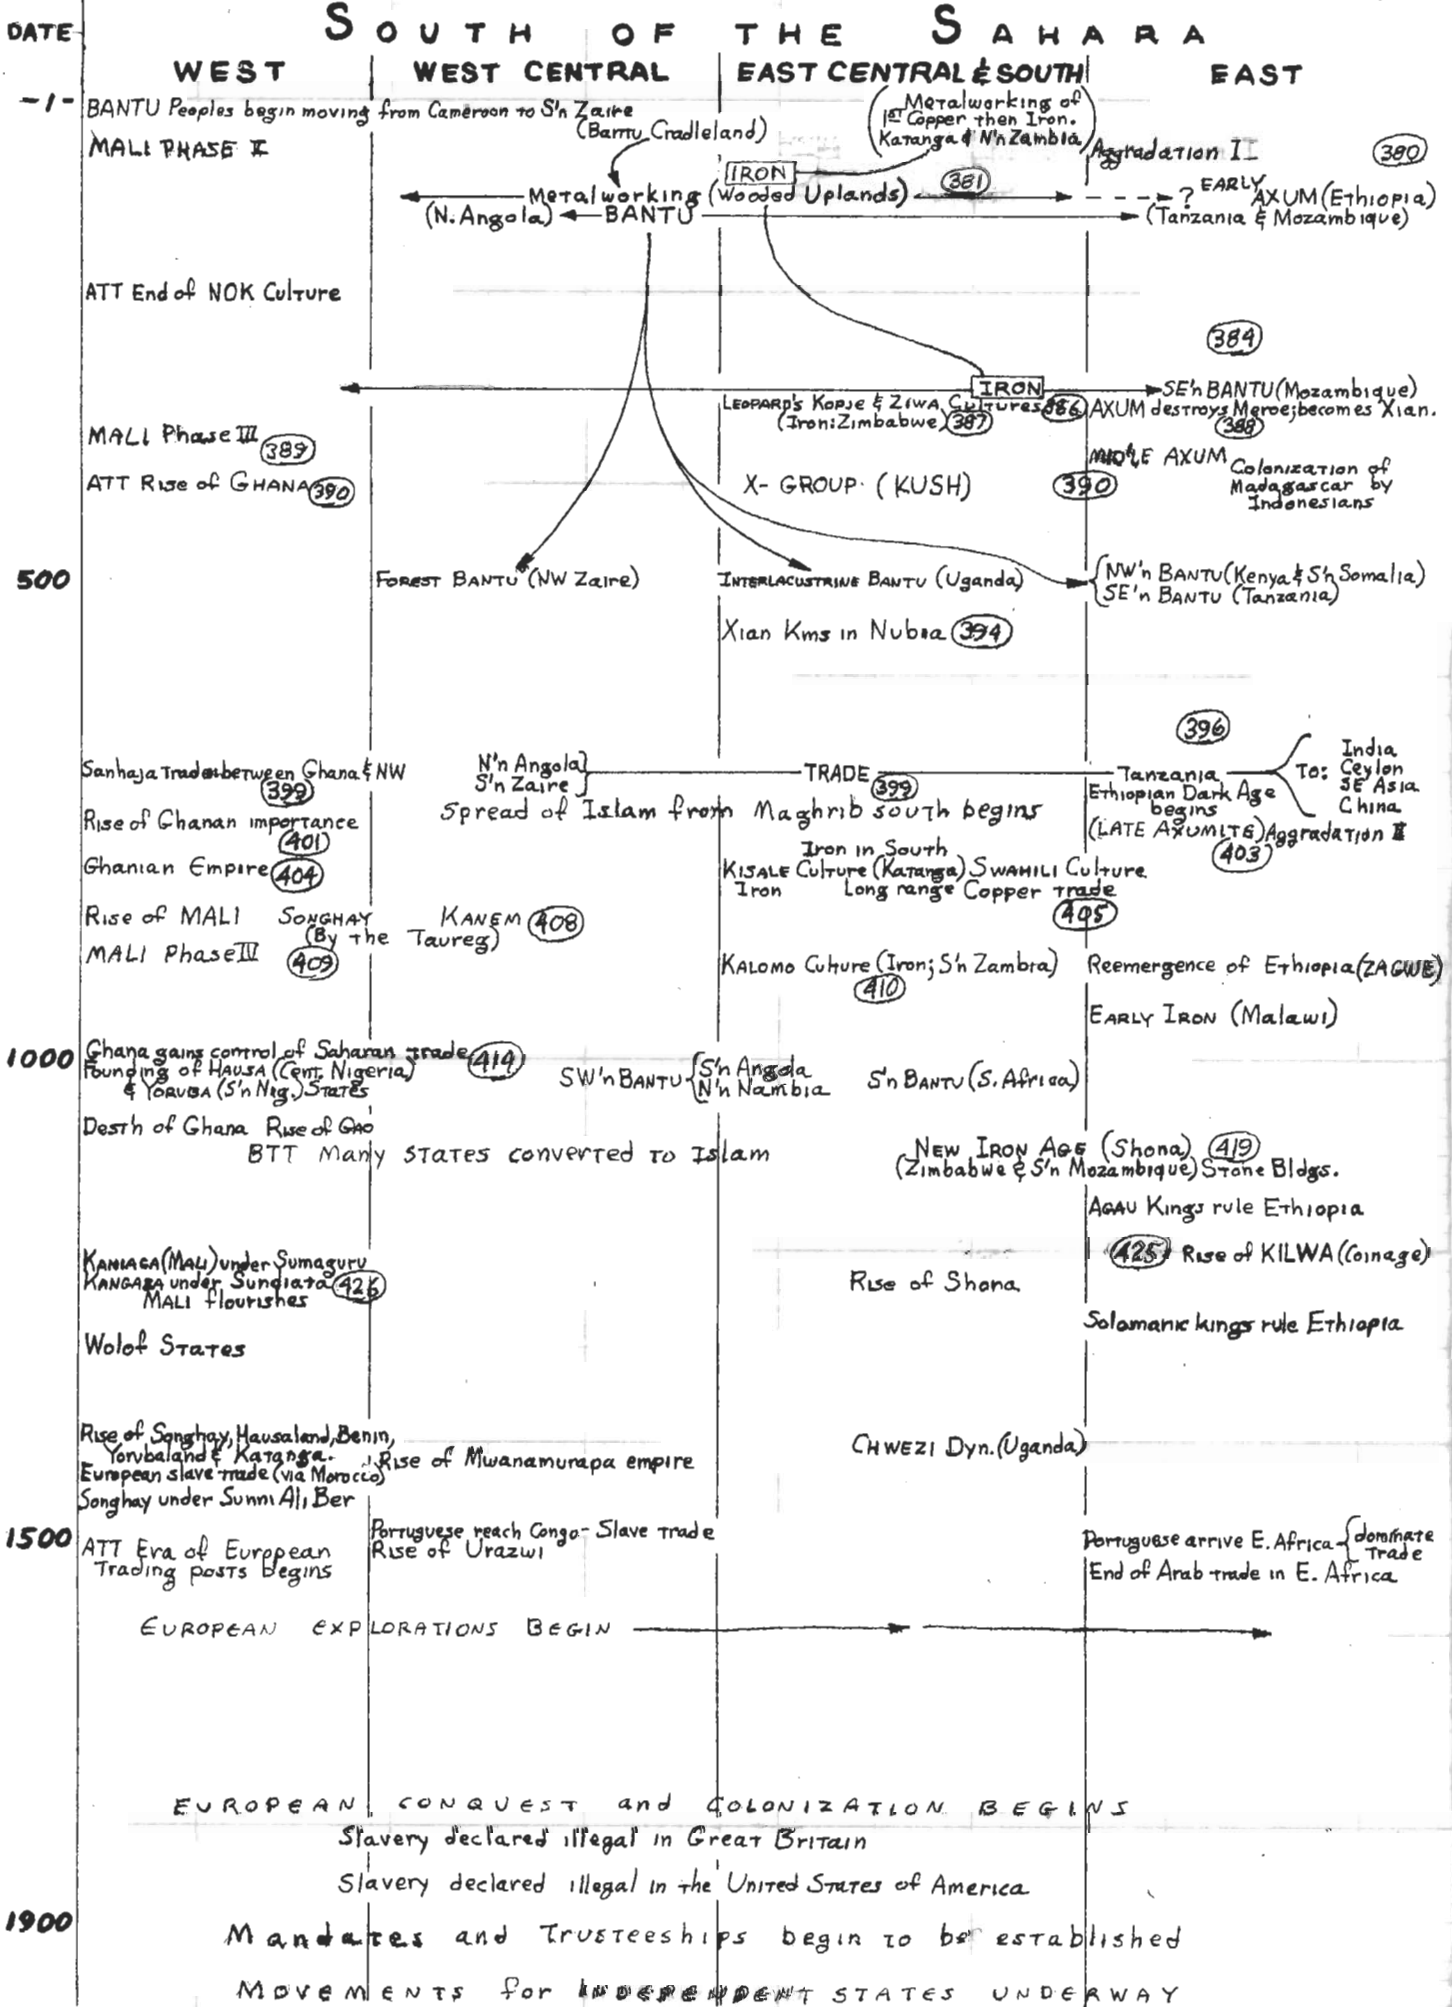 SOUTH OF THE SAHARA
DATE
WEST
WEST CENTRAL
EAST CENTRAL & SOUTH
EAST
-1-
BANTU Peoples begin moving from Cameroon to S'n Zaire
(Bantu Cradleland)
(Metalworking of
1ST Copper then Iron.
Katanga & N'n Zambia)
MALI PHASE II
Aggradation II
380
IRON
Metalworking (Wooded Uplands)
381
? EARLY
AXUM (Ethiopia)
(N. Angola)
BANTU
(Tanzania & Mozambique)
ATT End of NOK Culture
384
IRON
SE'n BANTU (Mozambique)
LEOPARD'S KOPJE & ZIWA Cultures
386
AXUM destroys Meroe; becomes Xian.
(Iron: Zimbabwe)
387
388
MALI Phase III
389
MIDDLE AXUM
Colonization of
Madagascar by
Indonesians
ATT Rise of GHANA
390
X-GROUP (KUSH)
390
500
FOREST BANTU (NW Zaire)
INTERLACUSTRINE BANTU (Uganda)
NW'n BANTU (Kenya & S'n Somalia)
SE'n BANTU (Tanzania)
Xian Kms in Nubia
394
396
Sanhaja Trade between Ghana & NW
399
N'n Angola
S'n Zaire
TRADE
399
Tanzania
TO:
India
Ceylon
SE Asia
China
Ethiopian Dark Age
begins
Spread of Islam from Maghrib south begins
Rise of Ghanan importance
401
(LATE AXUMITE)
Aggradation II
403
Iron in South
Ghanian Empire
404
KISALE Culture (Katanga)
SWAHILI Culture
Iron
Long range Copper trade
405
Rise of MALI
SONGHAY
KANEM
408
(By the Taureg)
MALI Phase IV
409
KALOMO Culture (Iron; S'n Zambia)
410
Reemergence of Ethiopia (ZAGWE)
EARLY IRON (Malawi)
1000
Ghana gains control of Saharan trade
414
Founding of HAUSA (Cent. Nigeria)
& YORUBA (S'n Nig.) STATES
SW'n BANTU
S'n Angola
N'n Nambia
S'n BANTU (S. Africa)
Desth of Ghana Rise of GAO
BTT Many STATES converted TO Islam
NEW IRON AGE (Shona)
419
(Zimbabwe & S'n Mozambique) Stone Bldgs.
AGAU Kings rule Ethiopia
KANIAGA (MALI) under Sumaguru
KANGABA under Sundiata
426
MALI flourishes
425
Rise of KILWA (Coinage)
Rise of Shona
Solomanic kings rule Ethiopia
Wolof STATES
Rise of Songhay, Hausaland, Benin,
Yorubaland & Katanga.
European slave trade (via Morocco)
Songhay under Sunni Ali Ber
Rise of Mwanamurapa empire
CHWEZI Dyn. (Uganda)
1500
ATT Era of European
Trading posts begins
Portuguese reach Congo - Slave trade
Rise of Urazwi
Portuguese arrive E. Africa
dominate
Trade
End of Arab trade in E. Africa
EUROPEAN EXPLORATIONS BEGIN
EUROPEAN CONQUEST and COLONIZATION BEGINS
Slavery declared illegal in Great Britain
Slavery declared illegal in the United States of America
1900
Mandates and Trusteeships begin to be established
MOVEMENTS for INDEPENDENT STATES UNDERWAY